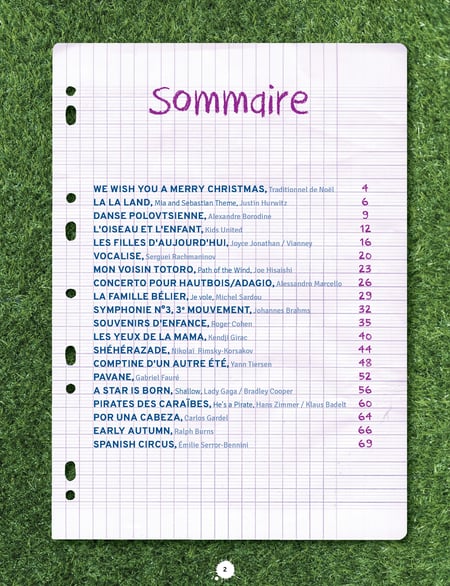 Sommaire
WE WISH YOU A MERRY CHRISTMAS, Traditionnel de Noël 4
LA LA LAND, Mia and Sebastian Theme, Justin Hurwitz 6
DANSE POLOVTSIENNE, Alexandre Borodine 9
L'OISEAU ET L'ENFANT, Kids United 12
LES FILLES D'AUJOURD'HUI, Joyce Jonathan / Vianney 16
VOCALISE, Serguei Rachmaninov 20
MON VOISIN TOTORO, Path of the Wind, Joe Hisaishi 23
CONCERTO POUR HAUTBOIS/ADAGIO, Alessandro Marcello 26
LA FAMILLE BÉLIER, Je vole, Michel Sardou 29
SYMPHONIE N°3, 3e MOUVEMENT, Johannes Brahms 32
SOUVENIRS D'ENFANCE, Roger Cohen 35
LES YEUX DE LA MAMA, Kendji Girac 40
SHÉHÉRAZADE, Nikolaï Rimsky-Korsakov 44
COMPTINE D'UN AUTRE ÉTÉ, Yann Tiersen 48
PAVANE, Gabriel Fauré 52
A STAR IS BORN, Shallow, Lady Gaga / Bradley Cooper 56
PIRATES DES CARAÏBES, He's a Pirate, Hans Zimmer / Klaus Badelt 60
POR UNA CABEZA, Carlos Gardel 64
EARLY AUTUMN, Ralph Burns 66
SPANISH CIRCUS, Emilie Serror-Bennini 69
2